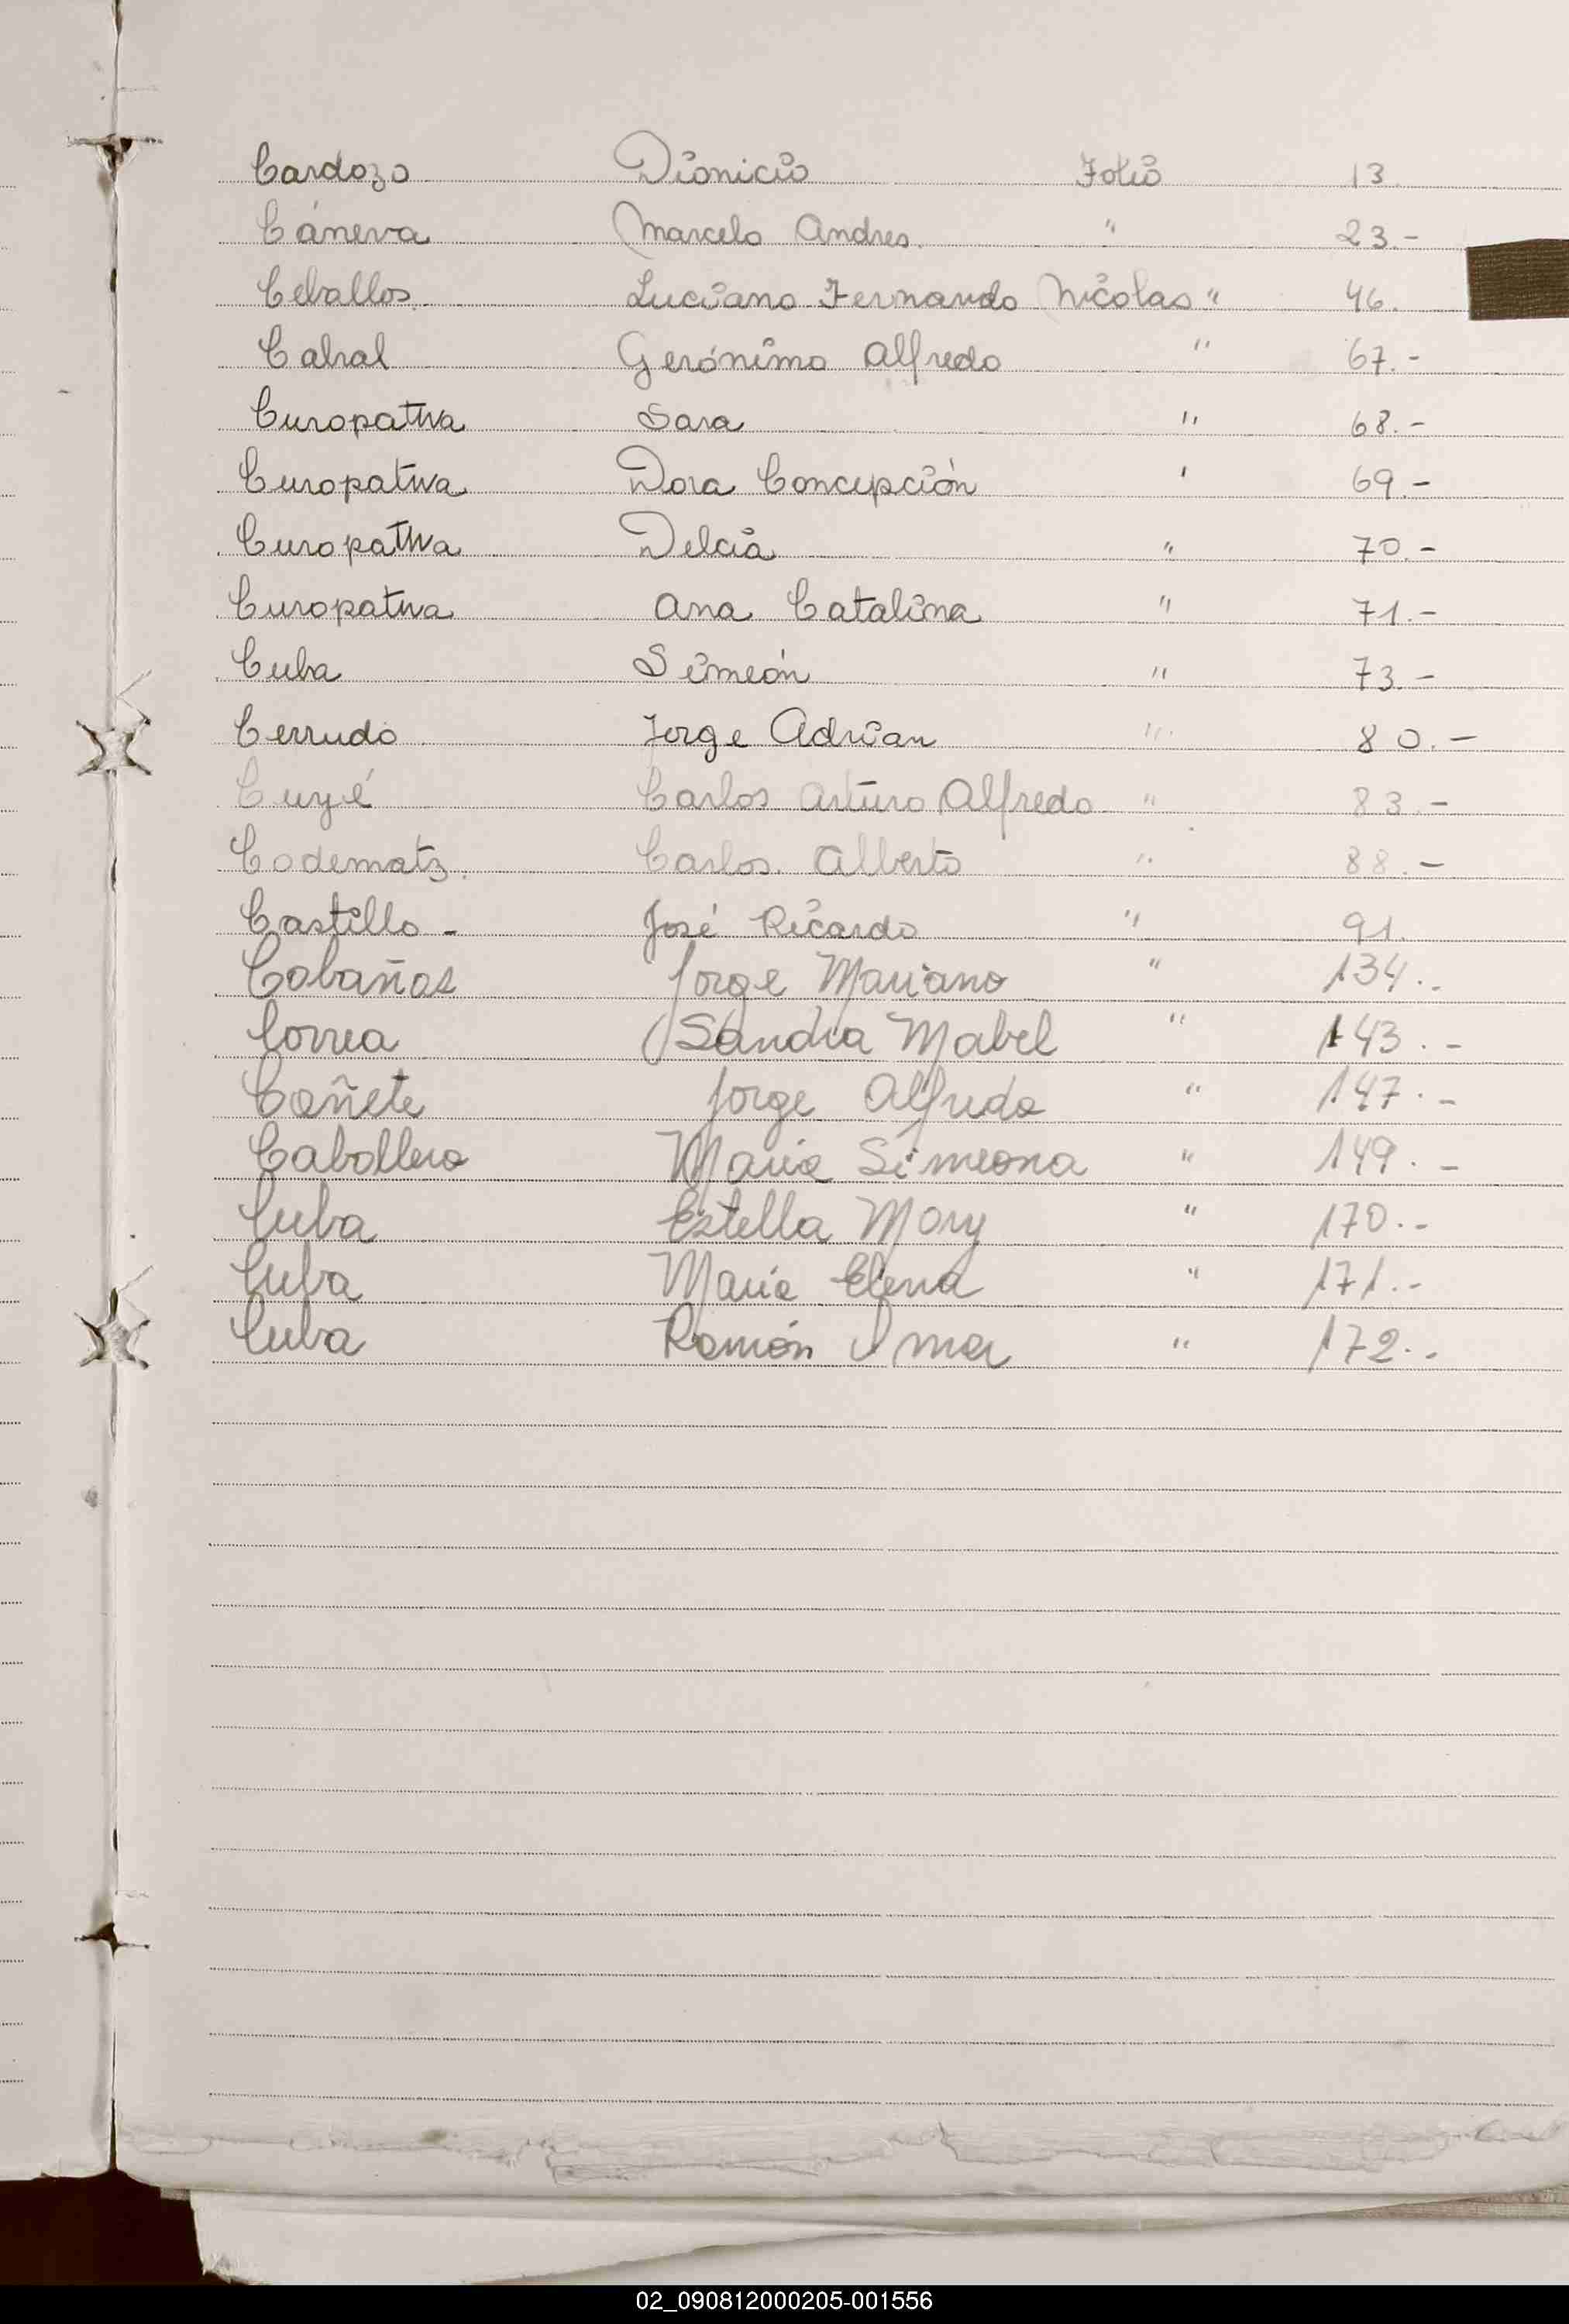 Cardozo Dionicio Folio 13
Cáneva Marcelo Andres " 23.-
Ceballos Luciano Fernando Nicolas " 46.
Cabral Gerónimo Alfredo " 67.-
Curopatwa Sara " 68.-
Curopatwa Dora Concepción ' 69.-
Curopatwa Delcia " 70.-
Curopatwa Ana Catalina " 71.-
Cuba Simeón " 73.-
Cerrudo Jorge Adrian " 80.-
Cuyé Carlos Arturo Alfredo " 83.-
Codematz. Carlos Alberto " 88.-
Castillo - José Ricardo " 91.
Cabañas Jorge Mariano " 134.-
Correa Sandra Mabel " 143.-
Cañete Jorge Alfredo " 147.-
Caballero Maria Simeona " 149.-
Cuba Estella Mary " 170.-
Cuba Maria Elena " 171.-
Cuba Ramón " 172.-
02_090812000205-001556